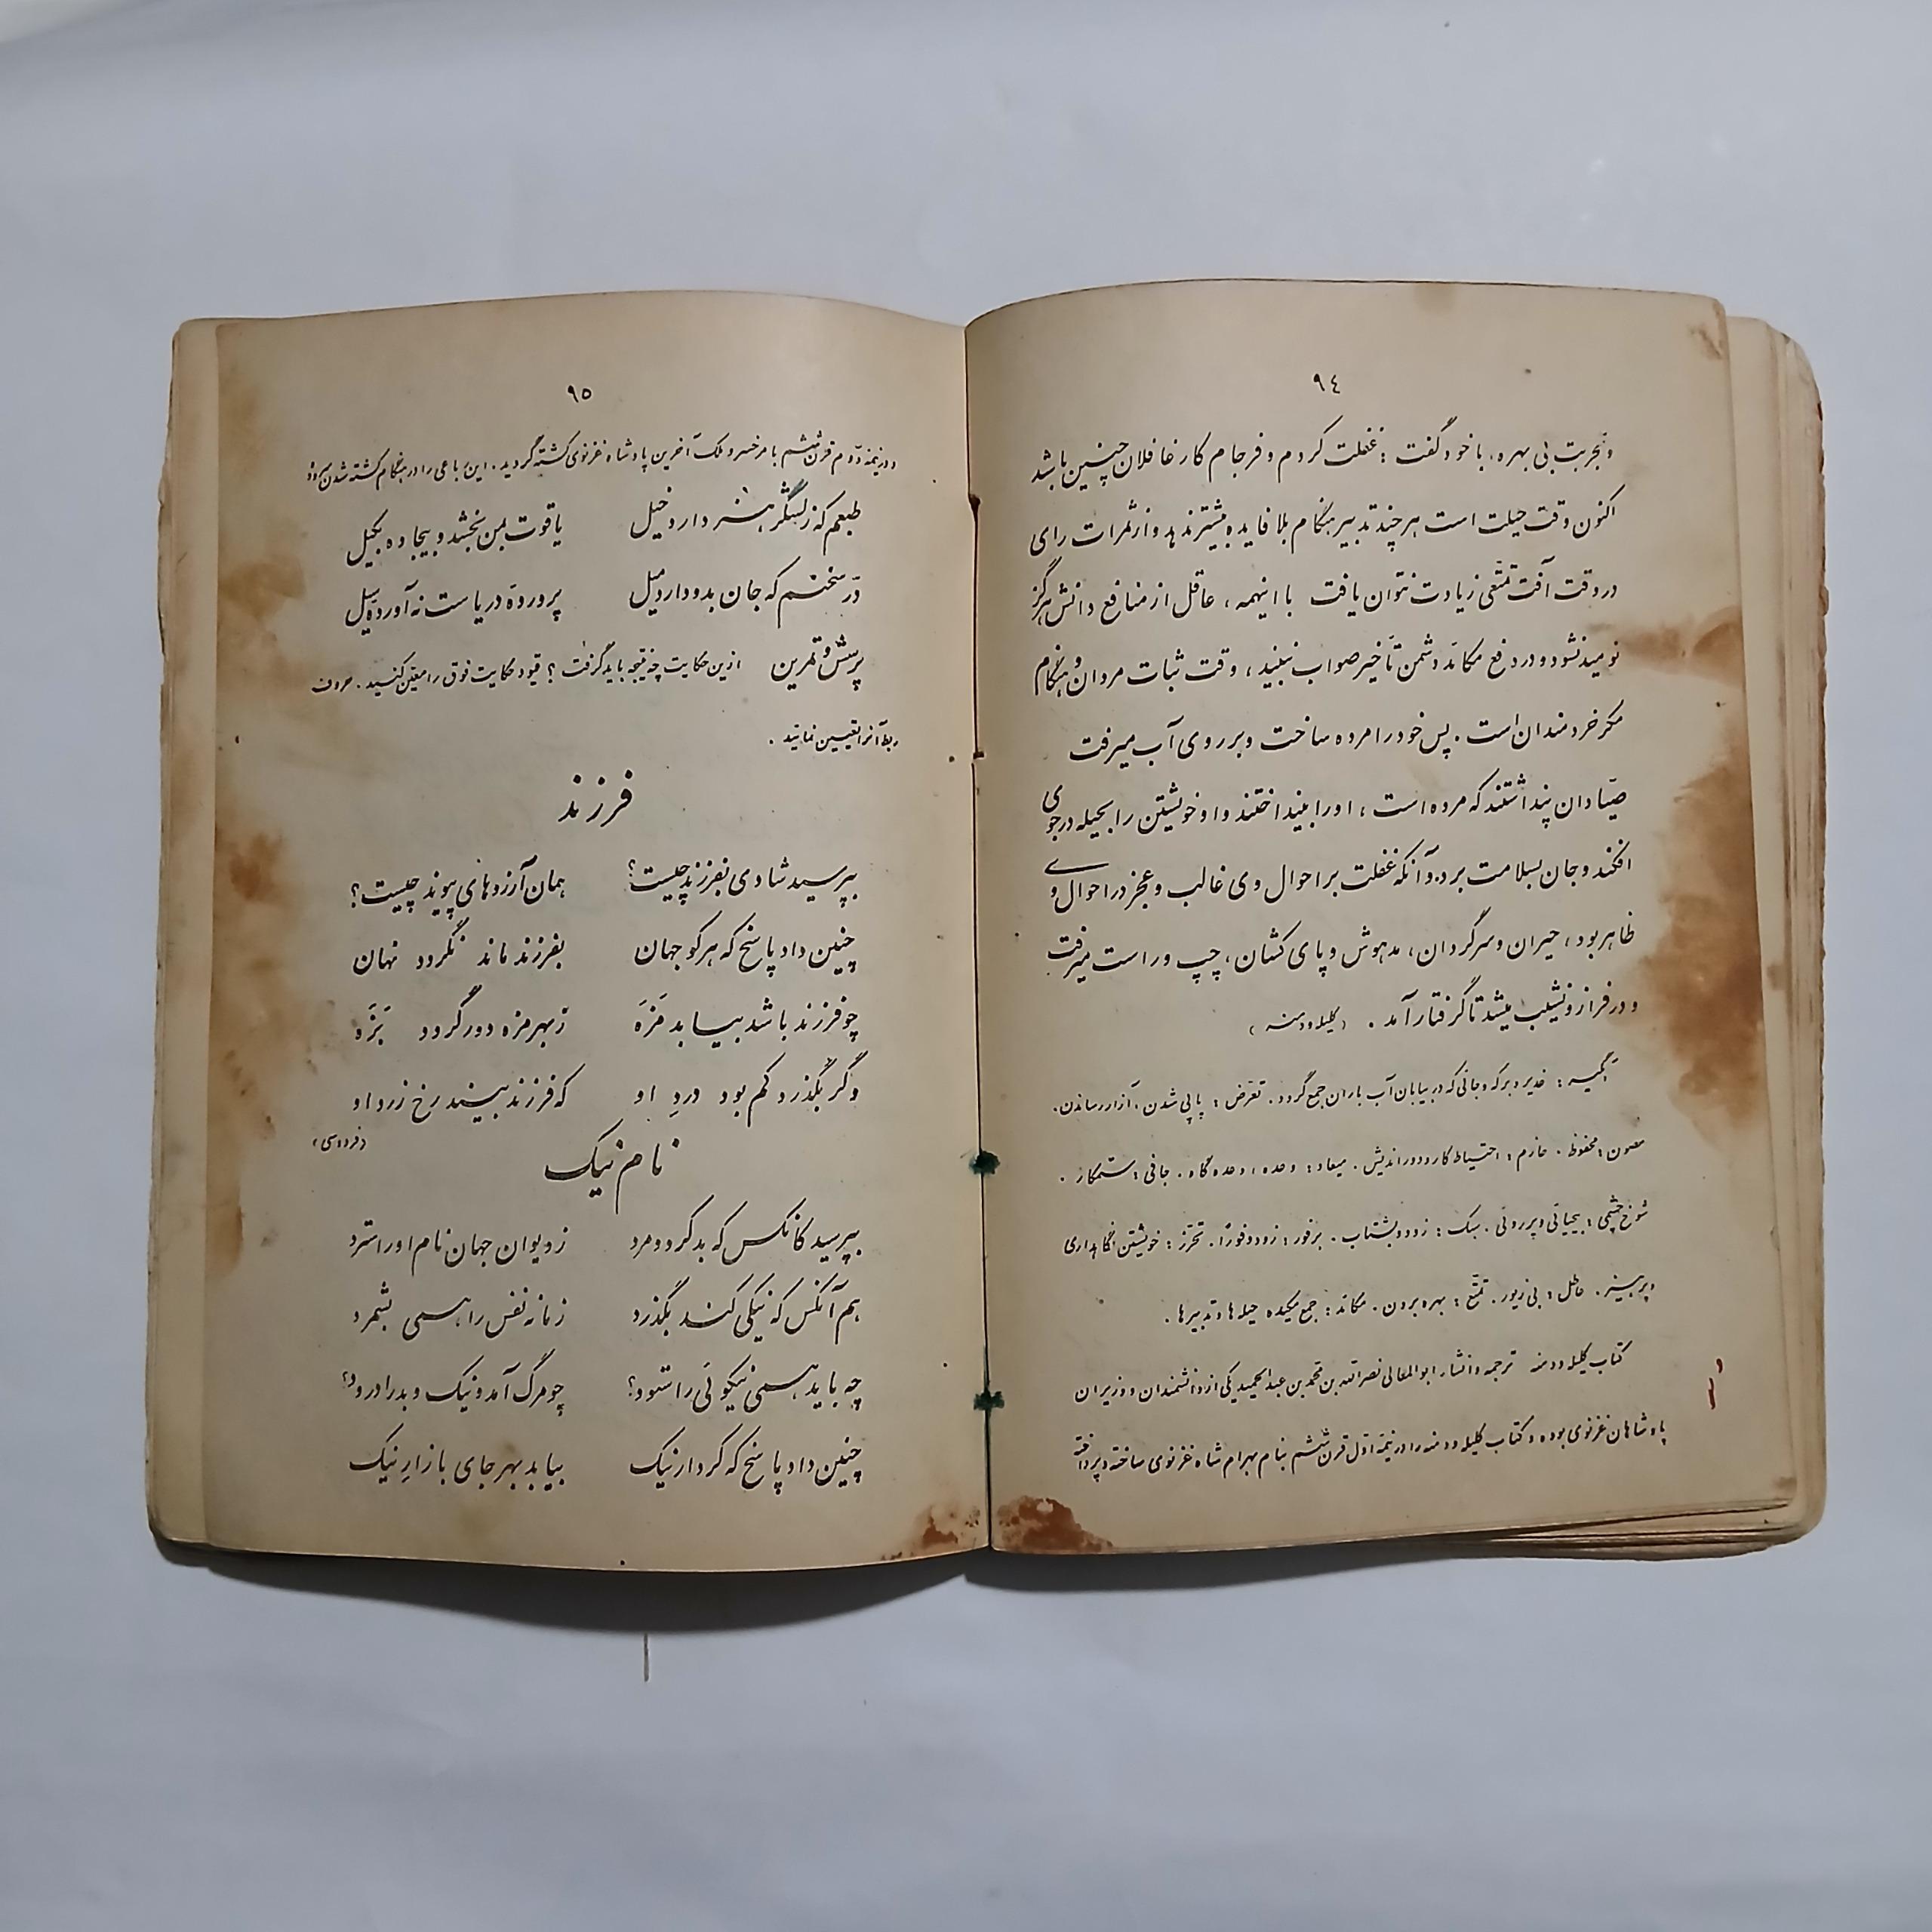 ٩٤
وتجربت بی بهره، با خود گفت: غفلت کردم و فرجام کار غافلان چنین باشد
اکنون وقت حیلت است هرچند تدبیر هنگام بلا فایده بیشتر ندهد و از ثمرات رای
در وقت آفت تمتّعی زیادت نتوان یافت با اینهمه، عاقل از منافع دانش هرگز
نومید نشود و در دفع مکائد دشمن تأخیر صواب نبیند، وقت ثبات مردان و هنگام
مکر خردمندان است. پس خود را مرده ساخت و بر روی آب میرفت
صیّادان پنداشتند که مرده است، او را بینداختند و او خویشتن را بحیله در جوی
افکند و جان بسلامت برد. و آنکه غفلت بر احوال وی غالب و عجز در احوال وی
ظاهر بود، حیران و سرگردان، مدهوش و پای کشان، چپ و راست میرفت
و در فراز و نشیب میشد تا گرفتار آمد. (کلیله و دمنه)
آبگیر: غدیر و برکه و جائی که در بیابان آب باران جمع گردد. تعرّض: پاپی شدن، آزار رساندن.
مصون: محفوظ. حازم: احتیاط کار و دوراندیش. میعاد: وعده، وعده گاه. جافی: ستمکار.
شوخ چشمی: بیحیائی و پرروئی. سبک: زود و بشتاب. برفور: زود و فوراً. تحرّز: خویشتن نگاهداری
و پرهیز. عاطل: بی زیور. تمتّع: بهره بردن. مکائد: جمع مکیده حیله ها و تدبیرها.
کتاب کلیله و دمنه ترجمه و انشاء ابوالمعالی نصرالله بن محمّد بن عبدالحمید یکی از دانشمندان و وزیران
پادشاهان غزنوی بوده و کتاب کلیله و دمنه را در نیمهٔ اوّل قرن ششم بنام بهرام شاه غزنوی ساخته و پرداخته
٩٥
و در نیمهٔ دوّم قرن ششم با مر خسرو ملک آخرین پادشاه غزنوی کشته گردید. این رباعی را در هنگام کشته شدن سروده
طبعم که ز لشگر هنر دارد خیل یاقوت بمن بخشد و بیجاده بکیل
درّ سخنم که جان بدو دارد میل پروردهٔ دریاست نه آوردهٔ سیل
پرسش و تمرین ازین حکایت چه نتیجه باید گرفت؟ قیود حکایت فوق را معیّن کنید. حروف
ربط آنرا تعیین نمائید.
فرزند
بپرسید شادی بفرزند چیست؟ همان آرزوهای پیوند چیست؟
چنین داد پاسخ که هر کو جهان بفرزند ماند نگردد نهان
چو فرزند باشد بیابد مَزَه ز بهر مزه دور گردد بَزَه
وگر بگذرد کم بود دردِ او که فرزند بیند رخ زرد او
(فردوسی)
نام نیک
بپرسید کانکس که بد کرد و مرد ز دیوان جهان نام او را سترد
هم آنکس که نیکی کند بگذرد زمانه نفس را همی بشمرد
چه باید همی نیکوئی را ستود؟ چو مرگ آمد و نیک و بد را درود؟
چنین داد پاسخ که کردار نیک بیابد بهر جای بازار نیک